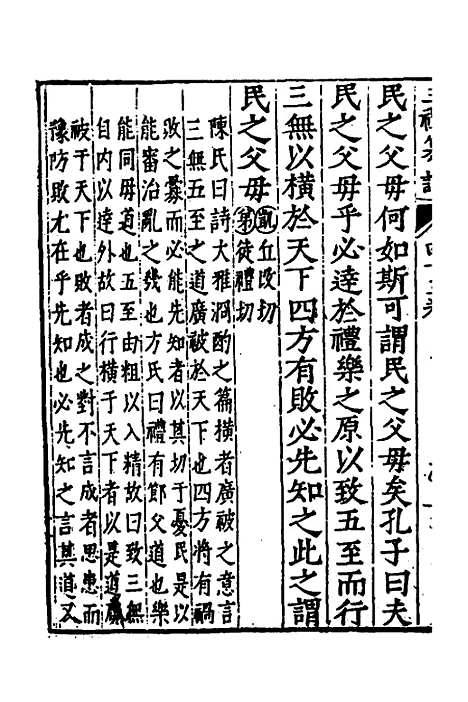 民之父毋何如斯可謂民之父毋矣孔子曰夫
民之父毋乎必達於禮樂之原以致五至而行
三無以橫於天下四方有敗必先知之此之謂
民之父毋 凱丘改切 弟徒禮切
陳氏曰詩大雅泂酌之篇橫者廣被之意言
三無五至之道廣被於天下也四方將有禍
敗之釁而必能先知者以其切于憂民是以
能審治亂之幾也方氏曰禮有節父道也樂
能同毋道也五至由粗以入精故曰致三無
自内以達外故曰行橫于天下者以是道廣
被于天下也敗者成之對不言成者思患而
豫防敗尤在乎先知也必先知之言其道又